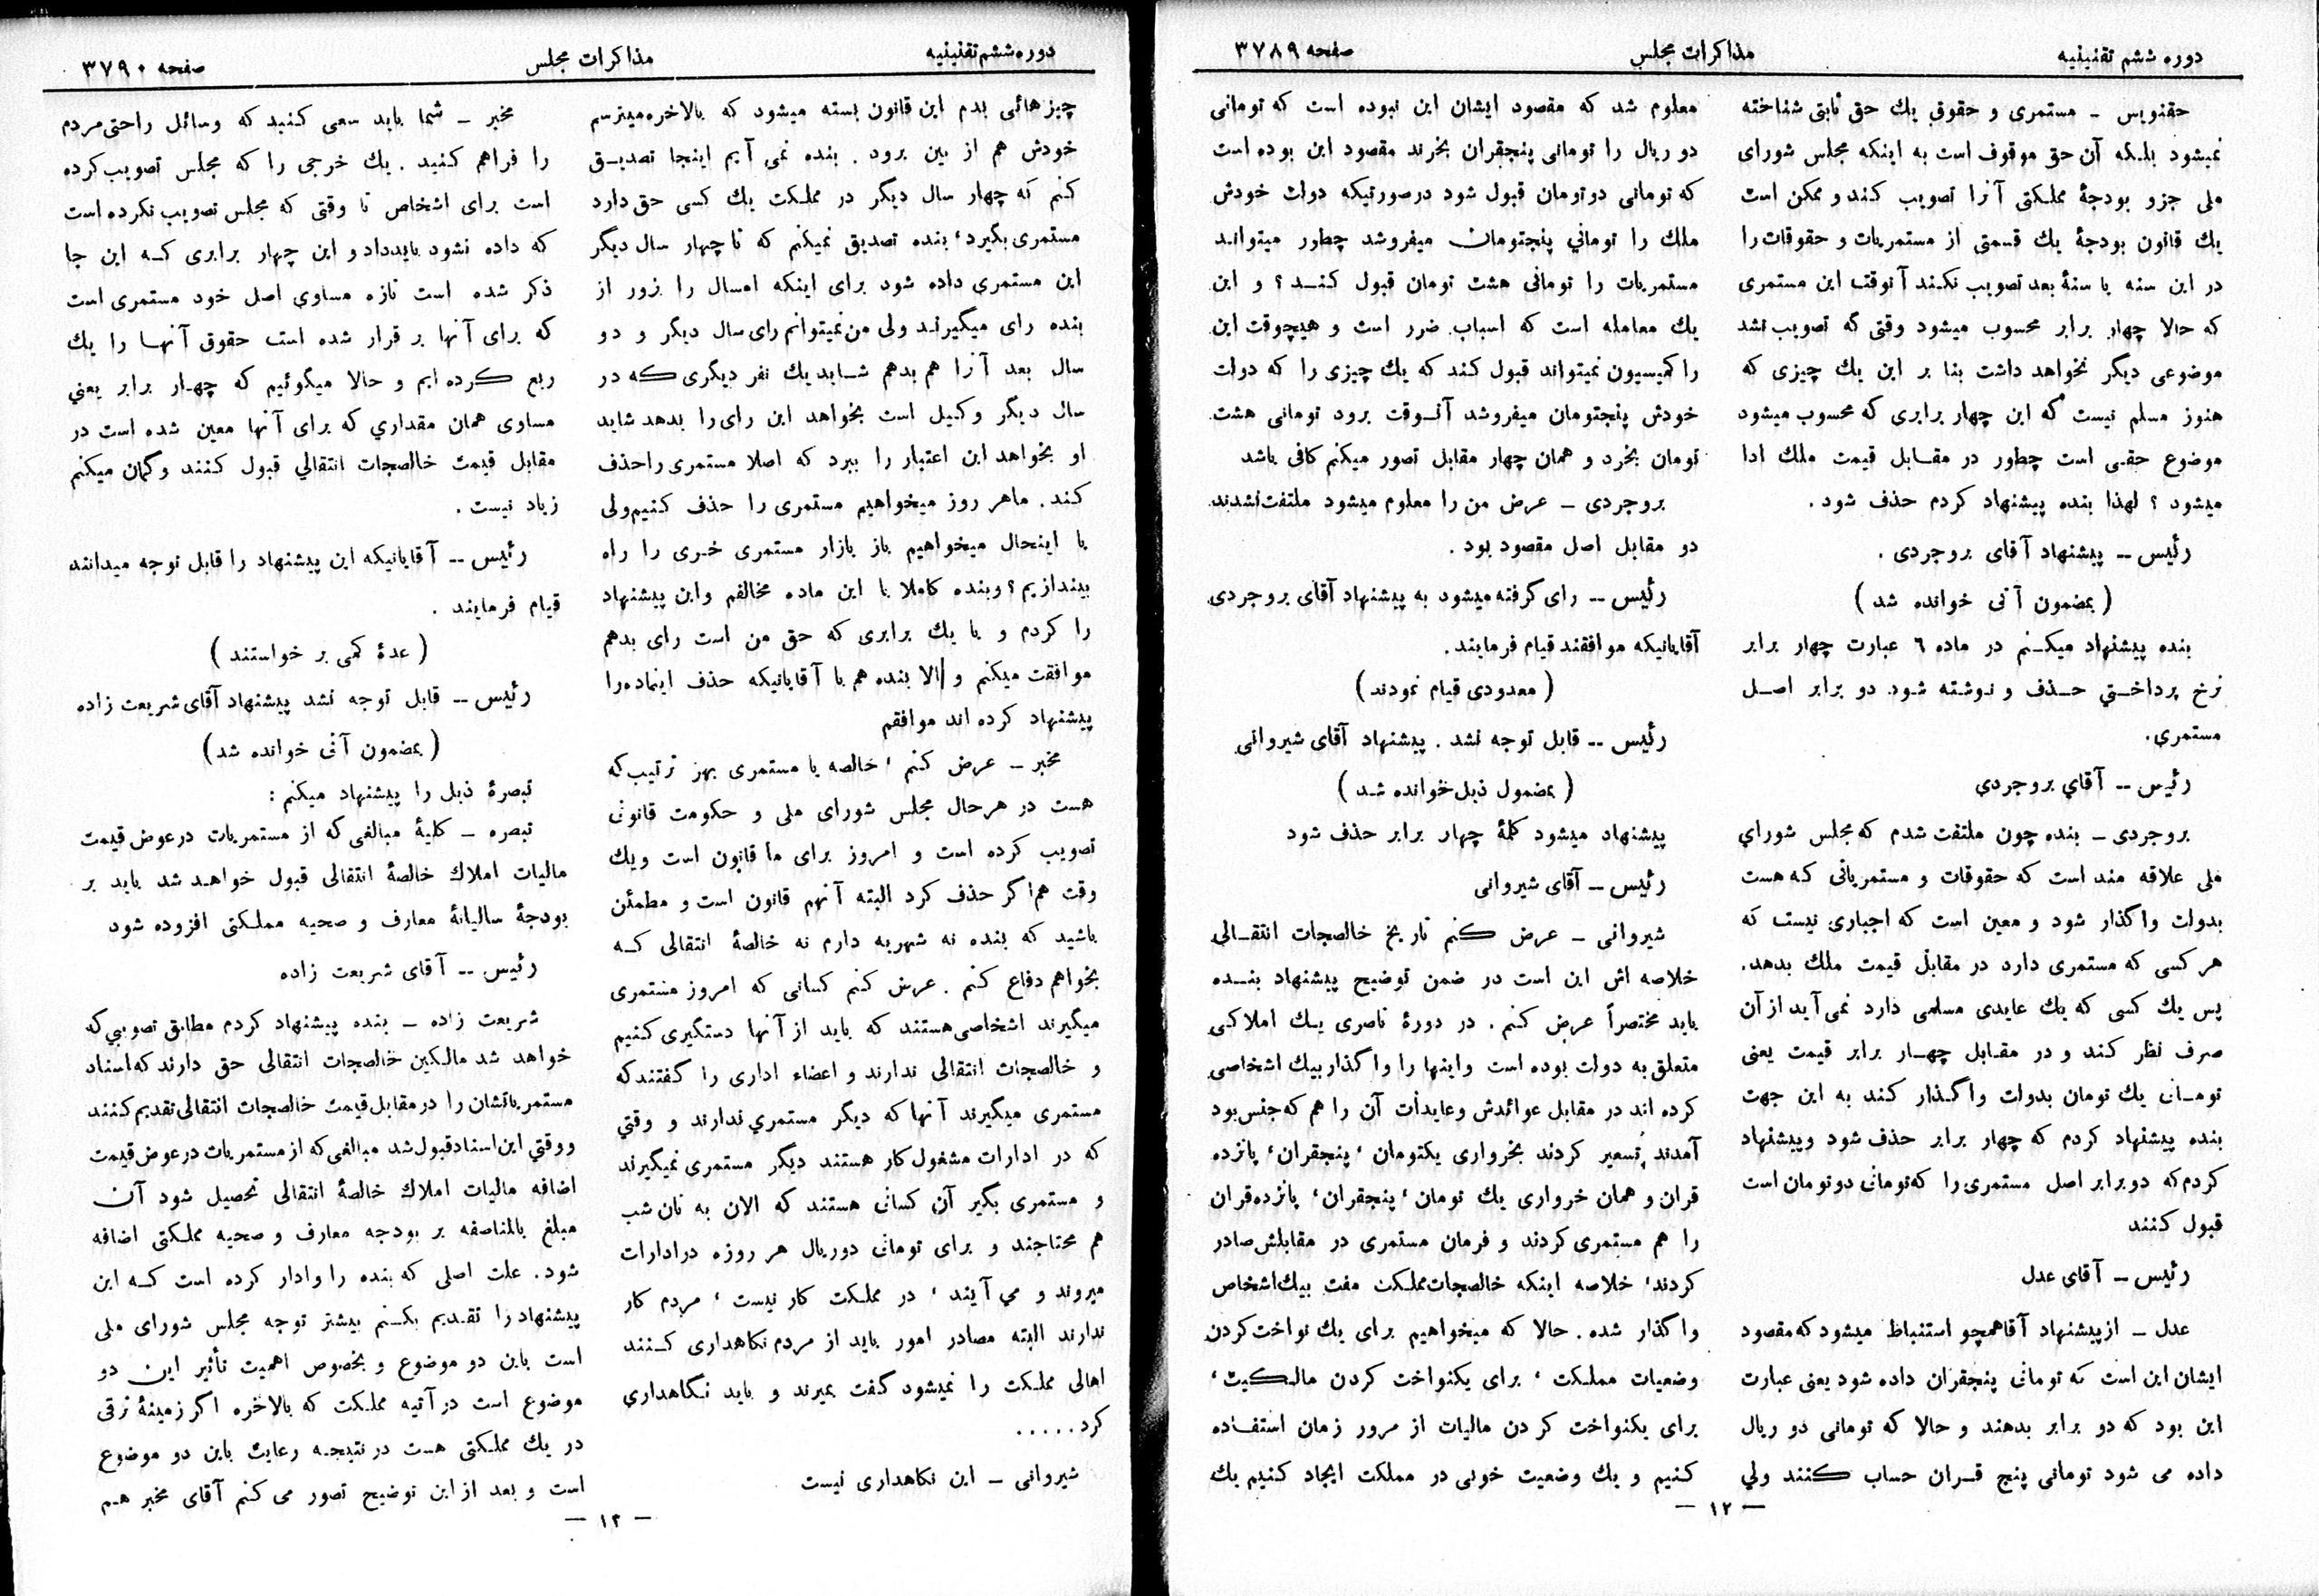 دوره ششم تقنینیه
مذاکرات مجلس
صفحه ۳۷۸۹
حقنویس ـ مستمری و حقوق یك حق ثابتی شناخته
نمیشود بلکه آن حق موقوف است به اینکه مجلس شورای
ملی جزو بودجهٔ مملکتی آنرا تصویب کند و ممکن است
یك قانون بودجهٔ یك قسمتی از مستمریات و حقوقات را
در این سنه یا سنهٔ بعد تصویب نکند آنوقت این مستمری
که حالا چهار برابر محسوب میشود وقتی که تصویب نشد
موضوعی دیگر نخواهد داشت بنا بر این یك چیزی که
هنوز مسلم نیست که این چهار برابری که محسوب میشود
موضوع حقی است چطور در مقابل قیمت ملك ادا
میشود ؟ لهذا بنده پیشنهاد کردم حذف شود .
رئیس -- پیشنهاد آقای بروجردی .
( بمضمون آتی خوانده شد )
بنده پیشنهاد میکنم در ماده ٦ عبارت چهار برابر
نرخ پرداختي حذف و نوشته شود دو برابر اصل
مستمري.
رئیس -- آقاي بروجردي
بروجردی ـ بنده چون ملتفت شدم که مجلس شورای
ملی علاقه مند است که حقوقات و مستمریاتی که هست
بدولت واگذار شود و معین است که اجباری نیست که
هر کسی که مستمری دارد در مقابل قیمت ملك بدهد.
پس یك کسی که یك عایدی مسلمی دارد نمی آید از آن
صرف نظر کند و در مقابل چهار برابر قیمت یعنی
تومانی یك تومان بدولت واگذار کند به این جهت
بنده پیشنهاد کردم که چهار برابر حذف شود و پیشنهاد
کردم که دو برابر اصل مستمری را که تومانی دو تومان است
قبول کنند
رئیس ـ آقای عدل
عدل ـ از پیشنهاد آقا همچو استنباط میشود که مقصود
ایشان این است که تومانی پنجقران داده شود یعنی عبارت
این بود که دو برابر بدهند و حالا که تومانی دو ریال
داده می شود تومانی پنج قران حساب کنند ولي
معلوم شد که مقصود ایشان این نبوده است که تومانی
دو ریال را تومانی پنجقران بخرند مقصود این بوده است
که تومانی دو تومان قبول شود در صورتیکه دولت خودش
ملك را توماني پنجتومان میفروشد چطور میتواند
مستمریات را تومانی هشت تومان قبول کند ؟ و این
یك معامله است که اسباب ضرر است و هیچوقت این
را کمیسیون نمیتواند قبول کند که یك چیزی را که دولت
خودش پنجتومان میفروشد آنوقت برود تومانی هشت
تومان بخرد و همان چهار مقابل تصور میکنم کافی باشد
بروجردی ـ عرض من را معلوم میشود ملتفت نشدند
دو مقابل اصل مقصود بود .
رئیس -- رای گرفته میشود به پیشنهاد آقای بروجردی
آقایانیکه موافقند قیام فرمایند.
( معدودی قیام نمودند )
رئیس -- قابل توجه نشد . پیشنهاد آقای شیروانی
( بمضمول ذیل خوانده شد )
پیشنهاد میشود کلمهٔ چهار برابر حذف شود
رئیس ـ آقای شیروانی
شیروانی ـ عرض کنم تاریخ خالصجات انتقالی
خلاصه اش این است در ضمن توضیح پیشنهاد بنده
باید مختصراً عرض کنم . در دورهٔ ناصری یك املاکی
متعلق به دولت بوده است و اینها را واگذار بیك اشخاصی
کرده اند در مقابل عوائدش و عایدات آن را هم که جنس بود
آمدند تسعیر کردند بخرواری یکتومان ، پنجقران ، پانزده
قران و همان خرواری یك تومان ، پنجقران ، پانزده قران
را هم مستمری کردند و فرمان مستمری در مقابلش صادر
کردند ، خلاصه اینکه خالصجات مملکت مفت بیك اشخاص
واگذار شده . حالا که میخواهیم برای یك نواخت کردن
وضعیات مملکت ، برای یکنواخت کردن مالکیت ،
برای یکنواخت کردن مالیات از مرور زمان استفاده
کنیم و یك وضعیت خوبی در مملکت ایجاد کنیم یك
— ١٢ —
دوره ششم تقنینیه
مذاکرات مجلس
صفحه ۳۷۹۰
چیزهائی بدم این قانون بسته میشود که بالاخره میترسم
خودش هم از بین برود . بنده نمی آیم اینجا تصدیق
کنم که چهار سال دیگر در مملکت یك کسی حق دارد
مستمری بگیرد ، بنده تصدیق نمیکنم که تا چهار سال دیگر
این مستمری داده شود برای اینکه امسال را بزور از
بنده رای میگیرند ولی من نمیتوانم رای سال دیگر و دو
سال بعد آنرا هم بدهم شاید یك نفر دیگری که در
سال دیگر وکیل است بخواهد این رای را بدهد شاید
او بخواهد این اعتبار را ببرد که اصلا مستمری را حذف
کند . ما هر روز میخواهیم مستمری را حذف کنیم ولی
با اینحال میخواهیم باز بازار مستمری خری را راه
بیندازیم ؟ و بنده کاملا با این ماده مخالفم و این پیشنهاد
را کردم و با یك برابری که حق من است رای بدهم
موافقت میکنم و الا بنده هم با آقایانیکه حذف اینماده را
پیشنهاد کرده اند موافقم
مخبر ـ عرض کنم ، خالصه یا مستمری بهر ترتیب که
هست در هر حال مجلس شورای ملی و حکومت قانونی
تصویب کرده است و امروز برای ما قانون است و یك
وقت هم اگر حذف کرد البته آنهم قانون است و مطمئن
باشید که بنده نه شهریه دارم نه خالصهٔ انتقالی که
بخواهم دفاع کنم . عرض کنم کسانی که امروز مستمری
میگیرند اشخاصی هستند که باید از آنها دستگیری کنیم
و خالصجات انتقالی ندارند و اعضاء اداری را گفتند که
مستمری میگیرند آنها که دیگر مستمري ندارند و وقتي
که در ادارات مشغول کار هستند دیگر مستمری نمیگیرند
و مستمری بگیر آن کسانی هستند که الان به نان شب
هم محتاجند و برای تومانی دوریال هر روزه در ادارات
میروند و می آیند ، در مملکت کار نیست ، مردم کار
ندارند البته مصادر امور باید از مردم نگاهداری کنند
اهالی مملکت را نمیشود گفت بمیرند و باید نگاهداری
کرد . . . . .
شیروانی ـ این نگاهداری نیست
مخبر ـ شما باید سعی کنید که وسائل راحتی مردم
را فراهم کنید . یك خرجی را که مجلس تصویب کرده
است برای اشخاص تا وقتی که مجلس تصویب نکرده است
که داده نشود باید داد و این چهار برابری که این جا
ذکر شده است تازه مساوی اصل خود مستمری است
که برای آنها بر قرار شده است حقوق آنها را یك
ربع کرده ایم و حالا میگوئیم که چهار برابر یعنی
مساوی همان مقداري که برای آنها معین شده است در
مقابل قیمت خالصجات انتقالي قبول کنند و گمان میکنم
زیاد نیست .
رئیس -- آقایانیکه این پیشنهاد را قابل توجه میدانند
قیام فرمایند .
( عدهٔ کمی بر خواستند )
رئیس -- قابل توجه نشد پیشنهاد آقای شریعت زاده
( بمضمون آتی خوانده شد )
تبصرهٔ ذیل را پیشنهاد میکنم :
تبصره ـ کلیهٔ مبالغی که از مستمریات در عوض قیمت
مالیات املاك خالصهٔ انتقالی قبول خواهد شد باید بر
بودجهٔ سالیانهٔ معارف و صحیه مملکتی افزوده شود
رئیس -- آقای شریعت زاده
شریعت زاده ـ بنده پیشنهاد کردم مطابق تصویبی که
خواهد شد مالکین خالصجات انتقالی حق دارند که اسناد
مستمریاتشان را در مقابل قیمت خالصجات انتقالی تقدیم کنند
و وقتي این اسناد قبول شد مبالغی که از مستمریات در عوض قیمت
اضافه مالیات املاك خالصهٔ انتقالی تحصیل شود آن
مبلغ بالمناصفه بر بودجه معارف و صحیه مملکتی اضافه
شود . علت اصلی که بنده را وادار کرده است که این
پیشنهاد را تقدیم بکنم بیشتر توجه مجلس شورای ملی
است باین دو موضوع و بخصوص اهمیت تأثیر این دو
موضوع است در آتیه مملکت که بالاخره اگر زمینهٔ ترقی
در یك مملکتی هست در نتیجه رعایت باین دو موضوع
است و بعد از این توضیح تصور می کنم آقای مخبر هم
— ١٣ —